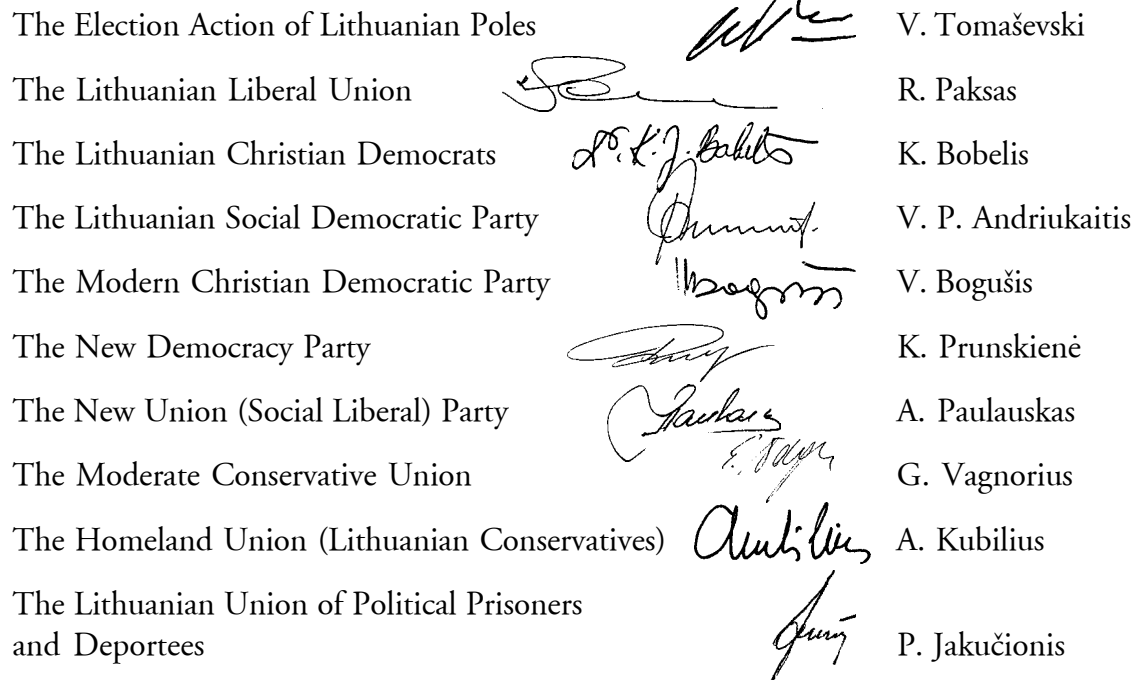 The Election Action of Lithuanian Poles V. Tomaševski
The Lithuanian Liberal Union R. Paksas
The Lithuanian Christian Democrats Dr. K. J. Bobelis K. Bobelis
The Lithuanian Social Democratic Party V. P. Andriukaitis
The Modern Christian Democratic Party V. Bogušis
The New Democracy Party K. Prunskienė
The New Union (Social Liberal) Party A. Paulauskas
The Moderate Conservative Union G. Vagnorius
The Homeland Union (Lithuanian Conservatives) A. Kubilius
The Lithuanian Union of Political Prisoners
and Deportees P. Jakučionis